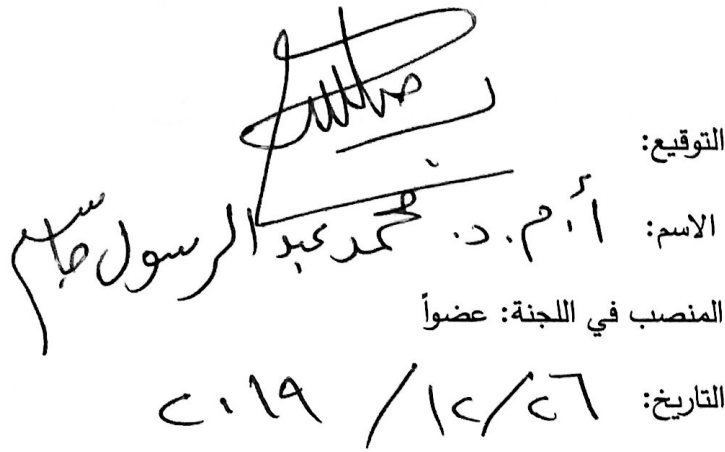 التوقيع:
الاسم: أ.م.د. محمد عبد الرسول جاسم
المنصب في اللجنة: عضواً
التاريخ: ٢٦/ ١٢/ ٢٠١٩